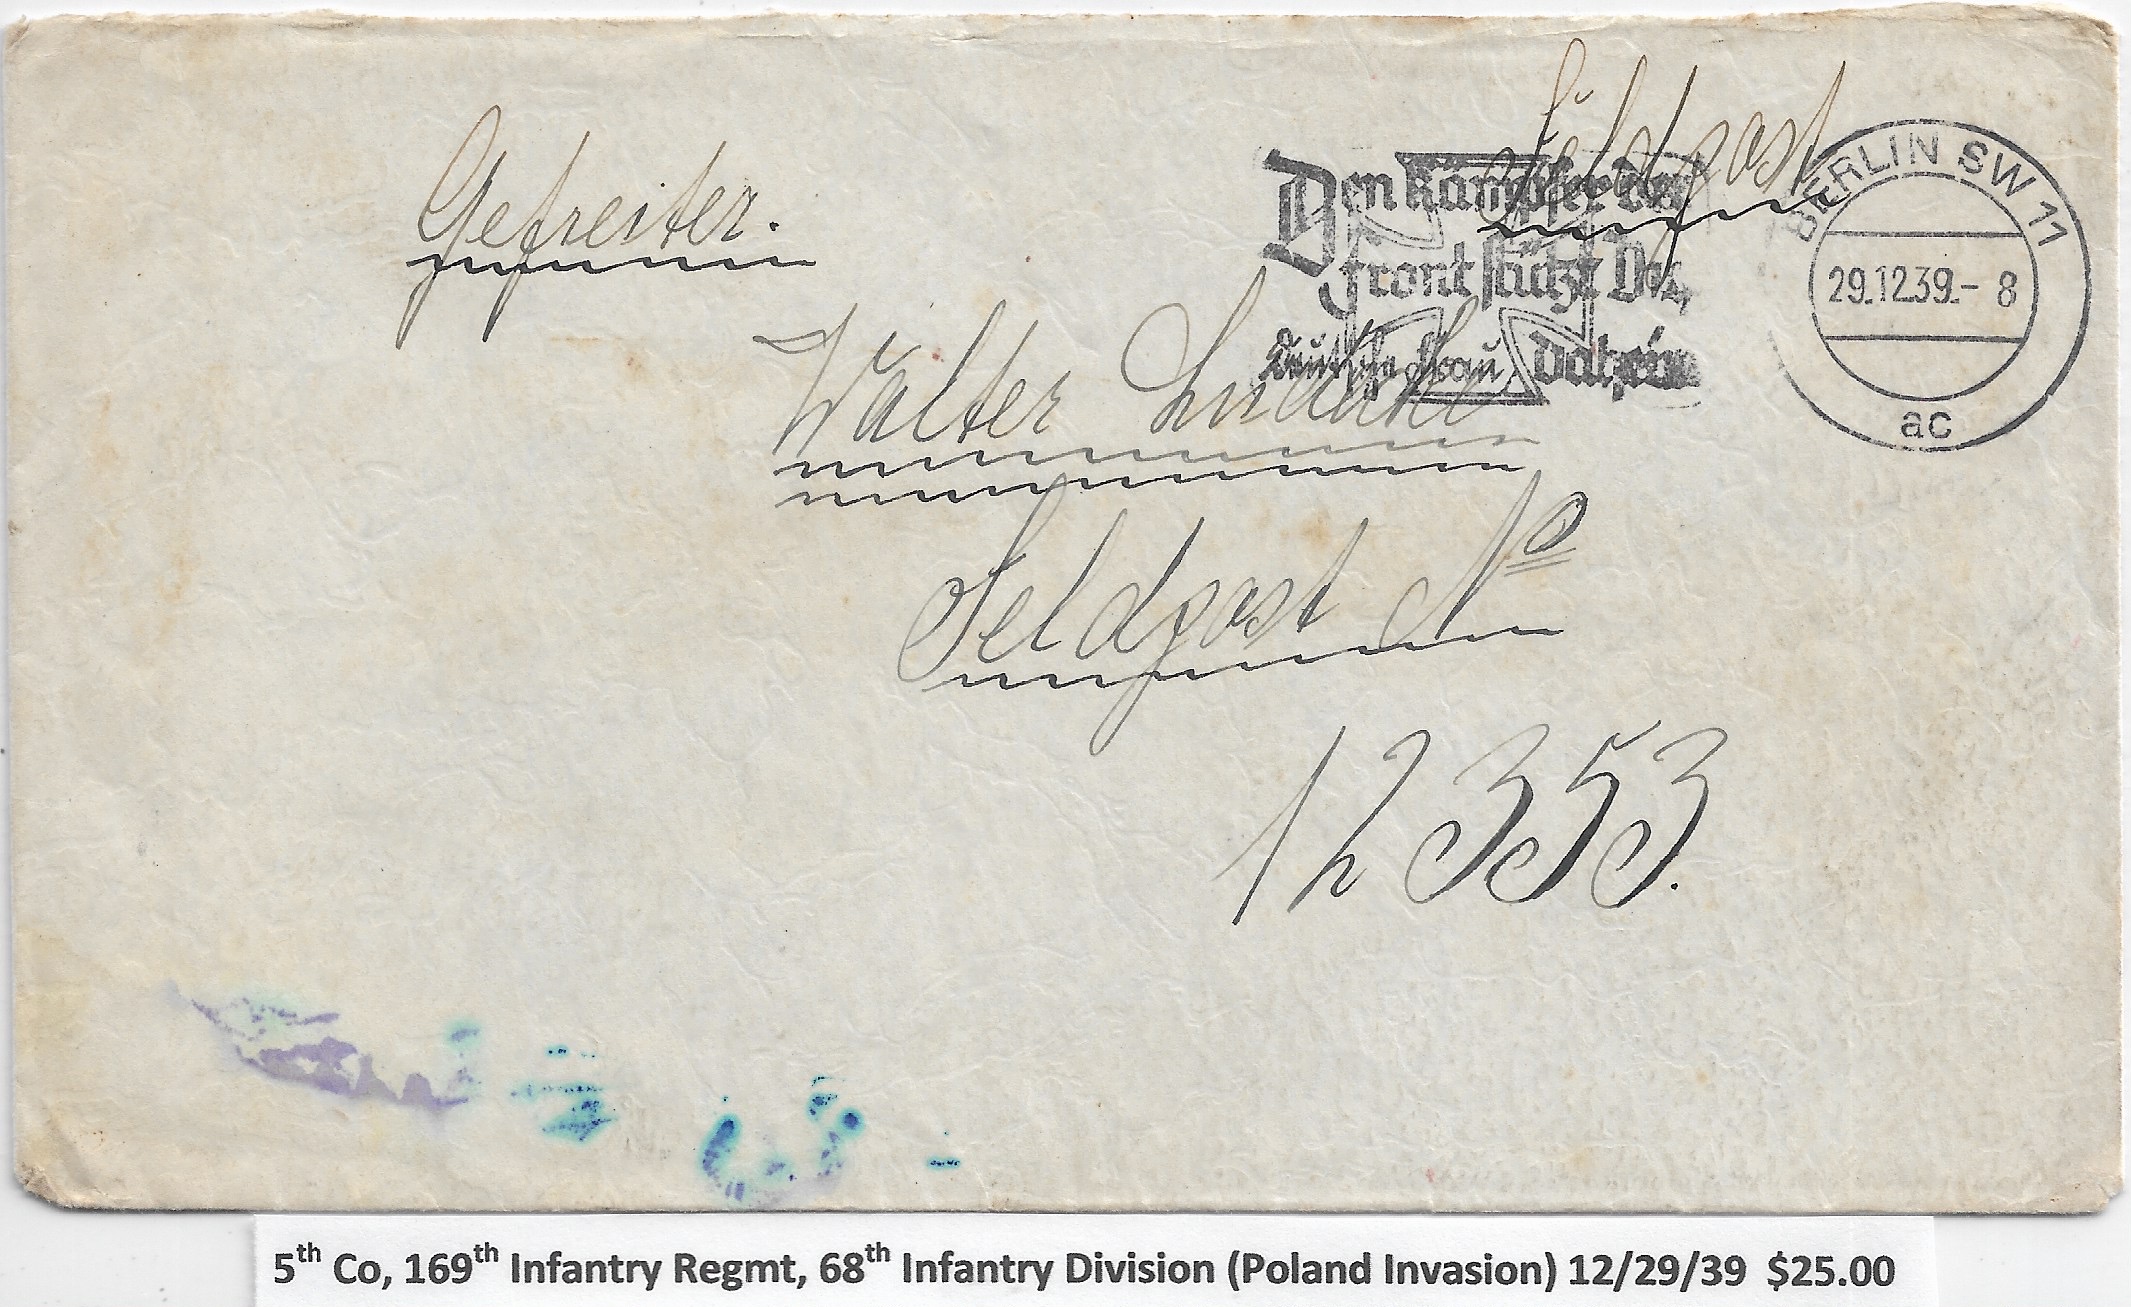 Feldpost
Gefreiter.
BERLIN SW 11
29.12.39.- 8
ac
Den Kämpfer der
Front stützt Die
deutsche Frau Daheim
Walter
Feldpost No
12353.
5th Co, 169th Infantry Regmt, 68th Infantry Division (Poland Invasion) 12/29/39 $25.00